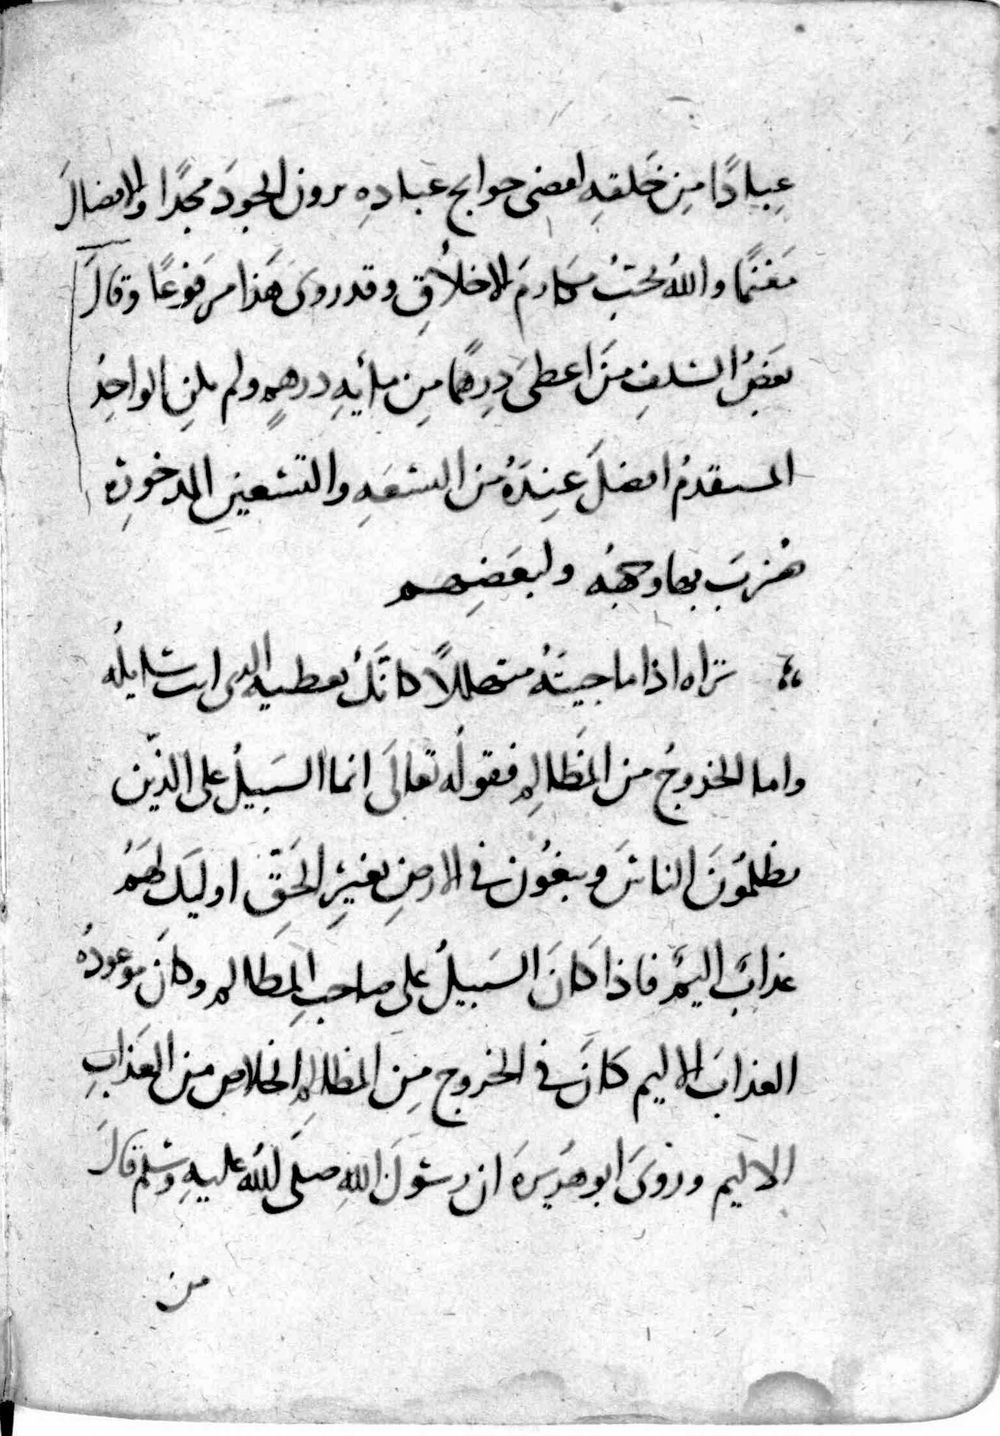 عِبادًا مِن خَلقِهِ لقضى حوايج عباده يرون الجودَ مجدًا والافضالَ
مَغنمًا واللهُ يُحبُّ مكارمَ الاخلاقِ وقد روى هَذا مرفوعًا وقالَ
بعضُ السّلفِ مَن اعطى دِرهمًا مِن مايهِ درهمٍ ولم يكنِ الواحِدُ
المستقدمُ افضلَ عِندَهُ من التسعَهِ والتسعين المدخورة
ضُرِبَ بها وجهُه ولبعَضِهم
تراه اذا ما جيتَهُ متهللًا كانّكَ تعطيه الذى انت سايلُه
واما الخروجُ من المَظالِمِ فقولُه تعالَى انما السَبيلُ على الذّين
يظلمُونَ الناسَ ويبغُون فى الارضِ بغيرِ الحَقّ اوليك لهَمُ
عذابٌ اليمٌ فاذا كانَ السَبيلُ على صاحبِ المظالم وكانَ موعودُه
العذابَ الاليم كانَ فى الخروج مِنَ المظالِمِ الخلاص من العَذابِ
الاليم وروَىَ ابو هُريرهَ ان رسُولَ اللهِ صلَى اللهُ عليهِ وسَلم قالَ
من